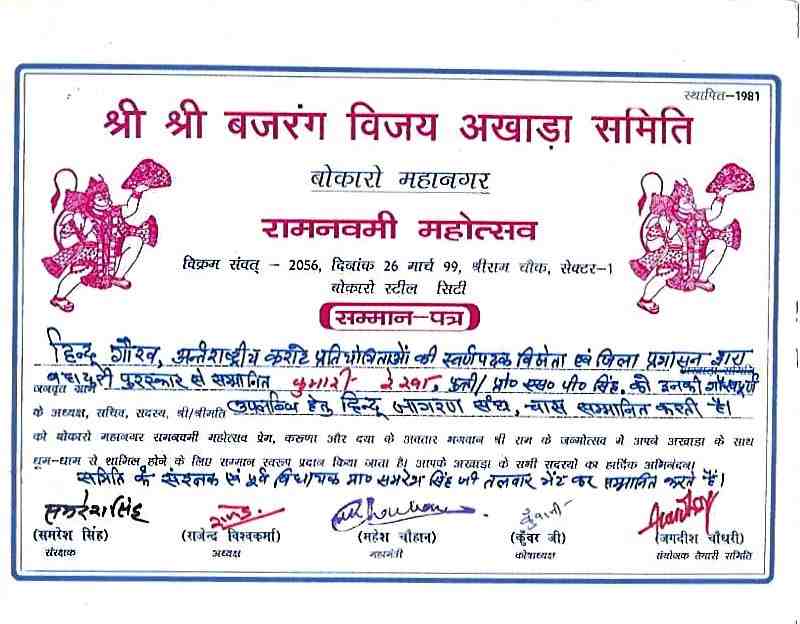 स्थापित-1981
श्री श्री बजरंग विजय अखाड़ा समिति
बोकारो महानगर
रामनवमी महोत्सव
विक्रम संवत् - 2056, दिनांक 26 मार्च 99, श्रीराम चौक, सेक्टर-1
बोकारो स्टील सिटी
सम्मान-पत्र
हिन्दू गौरव, अन्तर्राष्ट्रीय कराटे प्रतियोगिताओं की स्वर्णपदक विजेता एवं जिला प्रशासन द्वारा
अखाड़ा-समिति
बहादुरी पुरस्कार से सम्मानित कुमारी- रेखा, पुत्री/ प्रो० एस० पी० सिंह, को उनकी गौरवपूर्ण
जनवृत ग्राम
के अध्यक्ष, सचिव, सदस्य, श्री/श्रीमति उपलब्धि हेतु हिन्दू जागरण संघ, चास सम्मानित करती है।
को बोकारो महानगर रामनवमी महोत्सव प्रेम, करुणा और दया के अवतार भगवान श्री राम के जन्मोत्सव में आपने अखाड़ा के साथ
धूम-धाम से शामिल होने के लिए सम्मान स्वरुप प्रदान किया जाता है। आपके अखाड़ा के सभी सदस्यों का हार्दिक अभिनंदन।
समिति के संरक्षक एवं पूर्व विधायक प्रा० समरेश सिंह जी तलवार भेंट कर सम्मानित करते हैं।
समरेश सिंह
(समरेश सिंह) (राजेन्द विश्वकर्मा) (महेश चौहान) (कुँवर जी) (जगदीश चौधरी)
संरक्षक अध्यक्ष महामंत्री कोषाध्यक्ष संयोजक तैयारी समिति